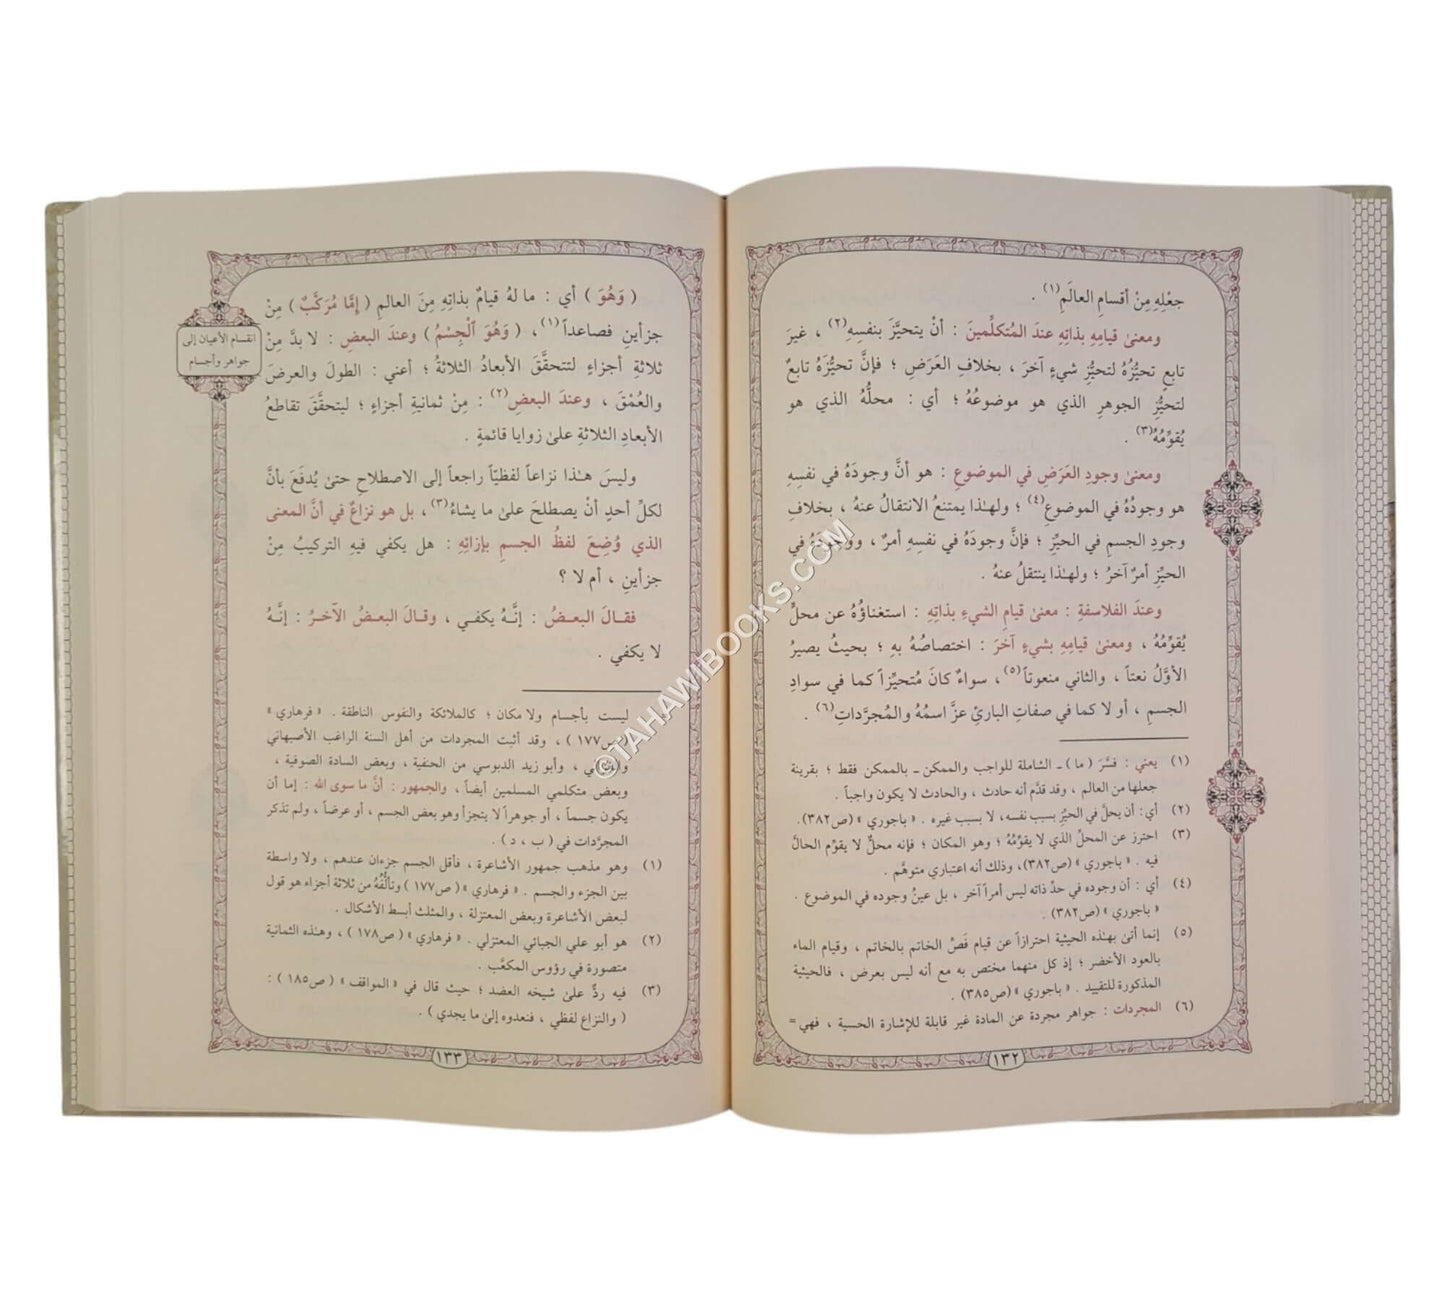 جعْلِهِ مِنْ أقسامِ العالَمِ(١) .
ومعنىٰ قيامِهِ بذاتِهِ عندَ المُتكلِّمينَ : أنْ يتحيَّزَ بنفسِهِ(٢) ، غيرَ
تابعٍ تحيُّزُهُ لتحيُّزِ شيءٍ آخرَ ، بخلافِ العَرَضِ ؛ فإنَّ تحيُّزَهُ تابعٌ
لتحيُّزِ الجوهرِ الذي هو موضوعُهُ ؛ أي : محلُّهُ الذي هو
يُقوِّمُهُ(٣) .
ومعنىٰ وجودِ العَرَضِ في الموضوعِ : هو أنَّ وجودَهُ في نفسِهِ
هو وجودُهُ في الموضوعِ(٤) ؛ ولهـٰذا يمتنعُ الانتقالُ عنهُ ، بخلافِ
وجودِ الجسمِ في الحيِّزِ ؛ فإنَّ وجودَهُ في نفسِهِ أمرٌ ، ووجودَهُ في
الحيِّزِ أمرٌ آخرُ ؛ ولهـٰذا ينتقلُ عنهُ .
وعندَ الفلاسفةِ : معنىٰ قيامِ الشيءِ بذاتِهِ : استغناؤُهُ عن محلٍّ
يُقوِّمُهُ ، ومعنىٰ قيامِهِ بشيءٍ آخرَ : اختصاصُهُ بهِ ؛ بحيثُ يصيرُ
الأوَّلُ نعتاً ، والثاني منعوتاً(٥) ، سواءٌ كانَ مُتحيِّزاً كما في سوادِ
الجسمِ ، أو لا كما في صفاتِ الباريْ عزَّ اسمُهُ والمُجرَّداتِ(٦) .
(١) يعني : فسَّرَ ( ما ) ـ الشاملة للواجب والممكن ـ بالممكن فقط ؛ بقرينة
جعلها من العالم ، وقد قدَّم أنه حادث ، والحادث لا يكون واجباً .
(٢) أي : أن يحلَّ في الحيِّز بسبب نفسه، لا بسبب غيره . « باجوري » (ص٣٨٢).
(٣) احترز عن المحلِّ الذي لا يقوِّمُهُ ؛ وهو المكان ؛ فإنه محلٌّ لا يقوِّم الحالَّ
فيه . « باجوري » (ص٣٨٢)، وذلك أنه اعتباري متوهَّم .
(٤) أي : أن وجوده في حدِّ ذاته ليس أمراً آخر ، بل عينُ وجوده في الموضوع .
« باجوري » (ص٣٨٢) .
(٥) إنما أتىٰ بهـٰذه الحيثية احترازاً عن قيام فَصِّ الخاتم بالخاتم ، وقيام الماء
بالعود الأخضر ؛ إذ كل منهما مختص به مع أنه ليس بعرض ، فالحيثية
المذكورة للتقييد . « باجوري » (ص٣٨٥) .
(٦) المجردات : جواهر مجردة عن المادة غير قابلة للإشارة الحسية ، فهي =
١٣٢
( وَهُوَ ) أي : ما لهُ قيامٌ بذاتِهِ مِنَ العالمِ ( إِمَّا مُرَكَّبٌ ) مِنْ
جزأينِ فصاعداً(١) ، ( وَهُوَ ٱلْجِسْمُ ) وعندَ البعضِ : لا بدَّ مِنْ
ثلاثةِ أجزاءٍ لتتحقَّقَ الأبعادُ الثلاثةُ ؛ أعني : الطولَ والعرضَ
والعُمْقَ ، وعندَ البعضِ(٢) : مِنْ ثمانيةِ أجزاءٍ ؛ ليتحقَّقَ تقاطعُ
الأبعادِ الثلاثةِ علىٰ زوايا قائمةٍ .
انقسام الأعيان إلى
جواهر وأجسام
وليسَ هـٰذا نزاعاً لفظيّاً راجعاً إلى الاصطلاحِ حتىٰ يُدفَعَ بأنَّ
لكلِّ أحدٍ أنْ يصطلحَ علىٰ ما يشاءُ(٣) ، بل هو نزاعٌ في أنَّ المعنى
الذي وُضِعَ لفظُ الجسمِ بإزائِهِ : هل يكفي فيهِ التركيبُ مِنْ
جزأينِ ، أم لا ؟
فقـالَ البعـضُ : إنَّـهُ يكفـي ، وقـالَ البعـضُ الآخـرُ : إنَّـهُ
لا يكفي .
ليست بأجسام ولا مكان ؛ كالملائكة والنفوس الناطقة . « فرهاري »
(ص١٧٧ ) ، وقد أثبت المجردات من أهل السنة الراغب الأصبهاني
، وأبو زيد الدبوسي من الحنفية ، وبعض السادة الصوفية ،
وبعض متكلمي المسلمين أيضاً ، والجمهور : أنَّ ما سوى الله : إما أن
يكون جسماً ، أو جوهراً لا يتجزأ وهو بعض الجسم ، أو عرضاً ، ولم تذكر
المجرَّدات في ( ب ، د ) .
(١) وهو مذهب جمهور الأشاعرة ، فأقل الجسم جزءان عندهم ، ولا واسطة
بين الجزء والجسم . « فرهاري » ( ص١٧٧ ) وتألُّفُهُ من ثلاثة أجزاء هو قول
لبعض الأشاعرة وبعض المعتزلة ، والمثلث أبسط الأشكال .
(٢) هو أبو علي الجبائي المعتزلي . « فرهاري » ( ص١٧٨ ) ، وهـٰذه الثمانية
متصورة في رؤوس المكعَّب .
(٣) فيه ردٌّ علىٰ شيخه العضد ؛ حيث قال في « المواقف » ( ص١٨٥ ) :
( والنزاع لفظي ، فنعدوه إلىٰ ما يجدي ) .
١٣٣
©TAHAWIBOOKS.COM